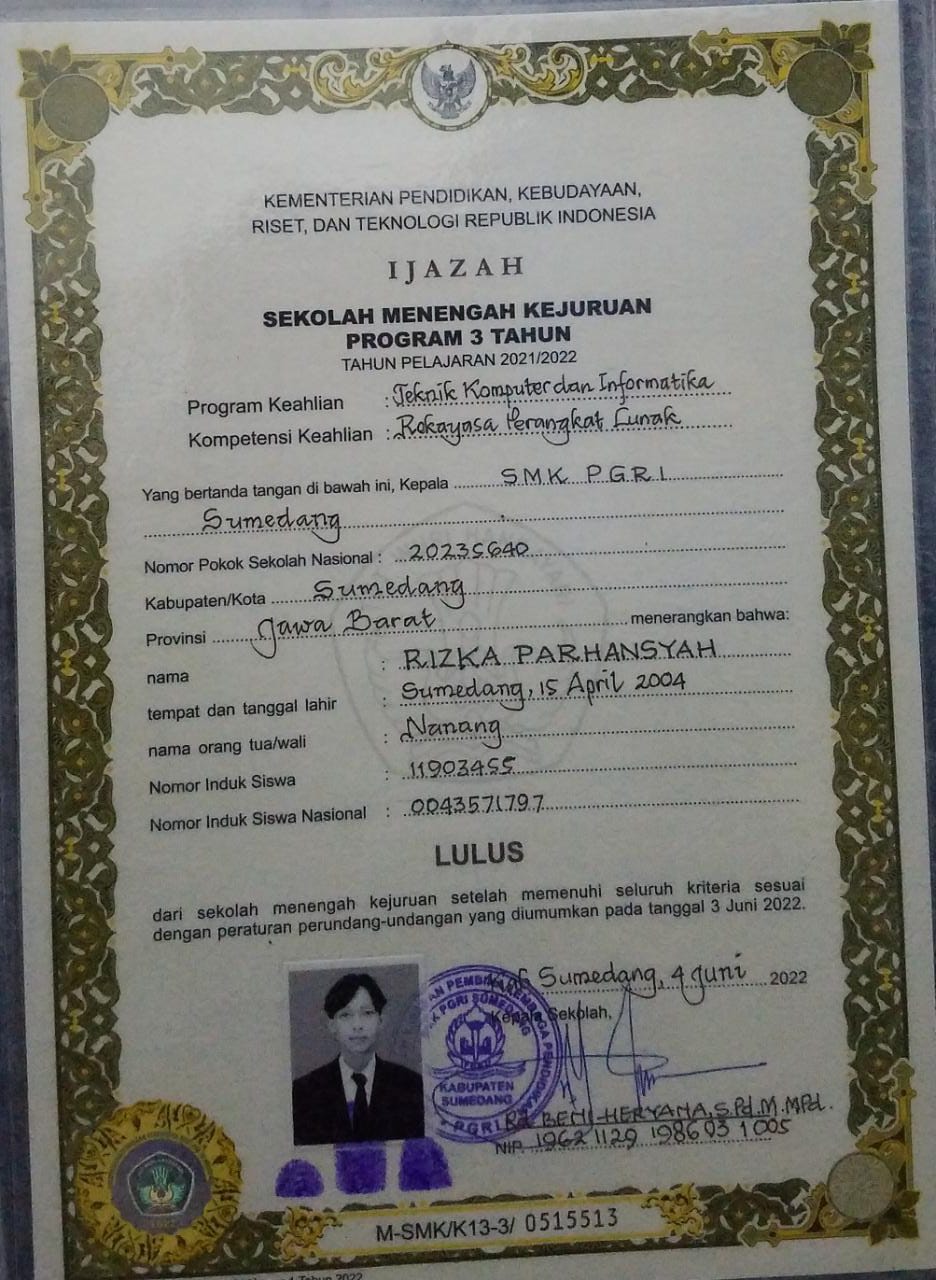 KEMENTERIAN PENDIDIKAN, KEBUDAYAAN,
RISET, DAN TEKNOLOGI REPUBLIK INDONESIA
IJAZAH
SEKOLAH MENENGAH KEJURUAN
PROGRAM 3 TAHUN
TAHUN PELAJARAN 2021/2022
Program Keahlian : Teknik Komputer dan Informatika
Kompetensi Keahlian : Rekayasa Perangkat Lunak
Yang bertanda tangan di bawah ini, Kepala SMK PGRI
Sumedang
Nomor Pokok Sekolah Nasional : 20235640
Kabupaten/Kota Sumedang
Provinsi Jawa Barat menerangkan bahwa:
nama : RIZKA PARHANSYAH
tempat dan tanggal lahir : Sumedang, 15 April 2004
nama orang tua/wali : Nanang
Nomor Induk Siswa : 11903455
Nomor Induk Siswa Nasional : 0043571797
LULUS
dari sekolah menengah kejuruan setelah memenuhi seluruh kriteria sesuai
dengan peraturan perundang-undangan yang diumumkan pada tanggal 3 Juni 2022.
Sumedang, 4 Juni 2022
Kepala Sekolah,
KABUPATEN
SUMEDANG
Rd. BENI HERYANA, S.Pd.M.MPd.
NIP. 19621129 198603 1 005
M-SMK/K13-3/ 0515513